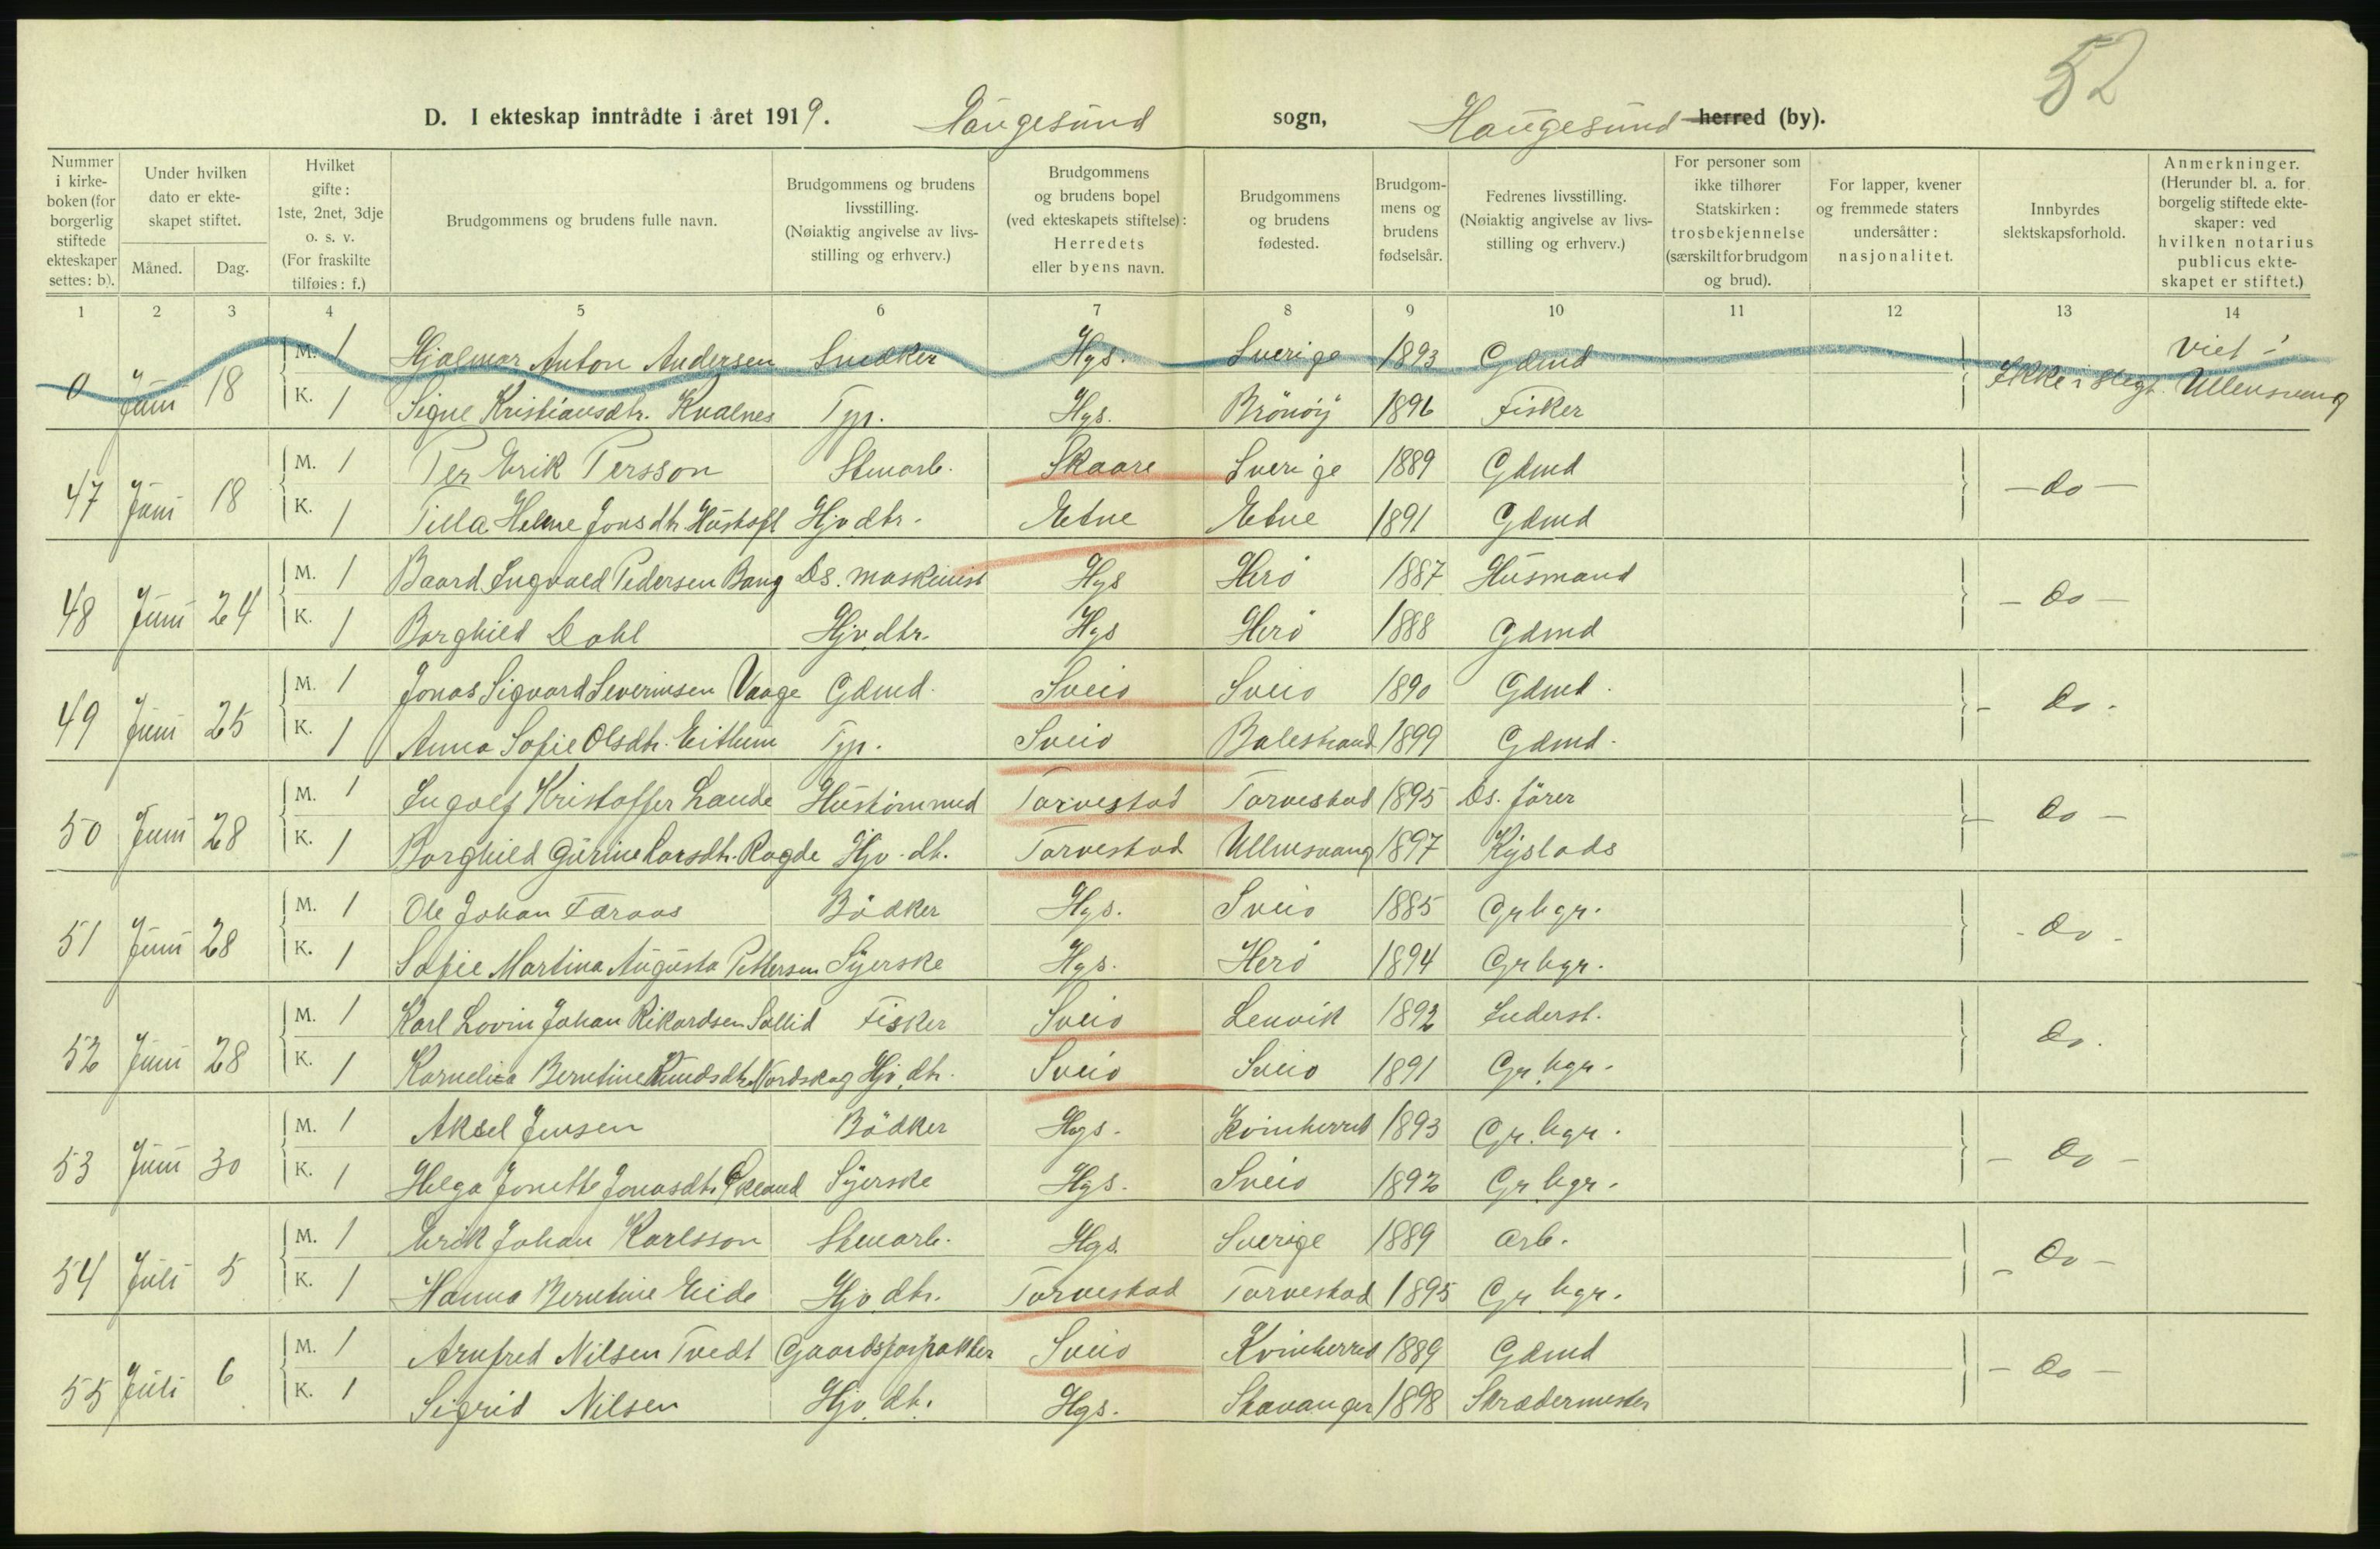 52
D. I ekteskap inntrådte i året 1919. Haugesund sogn, Haugesund herred (by).
Nummer i kirke-boken (for borgerlig stiftede ekteskaper settes: b).
Under hvilken dato er ekte-skapet stiftet.
Måned. Dag.
Hvilket gifte: 1ste, 2net, 3dje o. s. v. (For fraskilte tilføies: f.)
Brudgommens og brudens fulle navn.
Brudgommens og brudens livsstilling. (Nøiaktig angivelse av livs-stilling og erhverv.)
Brudgommens og brudens bopel (ved ekteskapets stiftelse): Herredets eller byens navn.
Brudgommens og brudens fødested.
Brudgom-mens og brudens fødselsår.
Fedrenes livsstilling. (Nøiaktig angivelse av livs-stilling og erhverv.)
For personer som ikke tilhører Statskirken: trosbekjennelse (særskilt for brudgom og brud).
For lapper, kvener og fremmede staters undersåtter: nasjonalitet.
Innbyrdes slektskapsforhold.
Anmerkninger. (Herunder bl. a. for borgelig stiftede ekte-skaper: ved hvilken notarius publicus ekte-skapet er stiftet.)
1 2 3 4 5 6 7 8 9 10 11 12 13 14
M. 1 Hjalmar Anton Andersen Snedker Hgs. Sverige 1893 Gdmd Viet i
0 Juni 18 Ikke i slegt. Ullensvang
K. 1 Signe Kristiansdtr. Kvalnes Typ. Hgs. Brönöy 1896 Fisker
M. 1 Per Erik Persson Stenarb. Skaare Sverige 1889 Gdmd
47 Juni 18 - do -
K. 1 Tilla Helene Jonsdtr Hustoft Hjv. dtr. Etne Etne 1891 Gdmd
M. 1 Baard Ingvald Pedersen Bang Ds. maskinist Hgs Herö 1887 Husmand
48 Juni 24 - do -
K. 1 Borghild Dahl Hjv. dtr. Hgs Herö 1888 Gdmd
M. 1 Jonas Sigvard Severinsen Vaage Gdmd. Sveio Sveio 1890 Gdmd.
49 Juni 25 - do -
K. 1 Anna Sofie Olsdtr. Eithun Typ. Sveio Balestrand 1899 Gdmd.
M. 1 Ingolf Kristoffer Lande Hustömmed Torvestad Torvestad 1895 Ds. förer
50 Juni 28 - do -
K. 1 Borghild Gurine Larsdtr. Ragde Hjv. dtr. Torvestad Ullensvang 1897 Kystlods
M. 1 Ole Johan Faraas Bödker Hgs. Sveio 1885 Grbgr.
51 Juni 28 - do -
K. 1 Sofie Martina Augusta Pettersen Syerske Hgs. Herö 1894 Grbgr.
M. 1 Karl Lovin Johan Rikardsen Sollid Fisker Sveio Lenvik 1892 Inderst.
52 Juni 28 do.
K. 1 Kornelia Berntine Knudsdtr. Nordskog Hjv. dtr. Sveio Sveio 1891 Gr. bgr.
M. 1 Aksel Jensen Bödker Hgs. Kvinherred 1893 Gr. bgr.
53 Juni 30 - do -
K. 1 Helga Jonette Jonasdtr. Ökland Syerske Hgs. Sveio 1892 Gr. bgr.
M. 1 Erik Johan Karlsson Stenarb. Hgs. Sverige 1889 Arb.
54 Juli 5 - do -
K. 1 Hanna Berntine Eide Hjv. dtr. Torvestad Torvestad 1895 Gr. bgr.
M. 1 Arnfred Nilsen Tvedt Gaardsforpakter Sveio Kvinherred 1889 Gdmd
55 Juli 6 - do -
K. 1 Sigrid Nilsen Hjv. dtr. Hgs. Stavanger 1898 Skrædermester